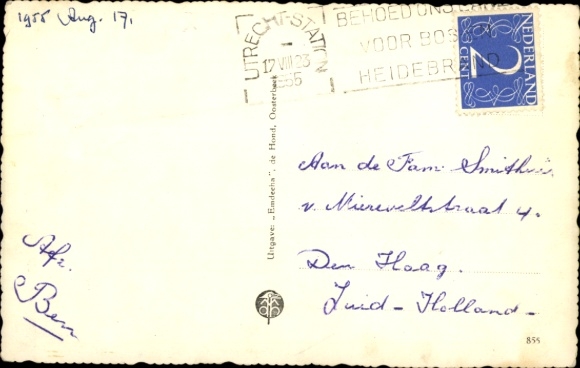 1955 Aug. 17.
UTRECHT-STATION
17 VIII 23
1955
BEHOED ONS LAND
VOOR BOS- EN
HEIDEBRAND
NEDERLAND
2
CENT
Uitgave: „Emdeeha", de Hond, Oosterbeek
Aan de Fam. 
v. Miereveltstraat 4.
Den Haag.
Zuid-Holland-
Afz.
Ben
855